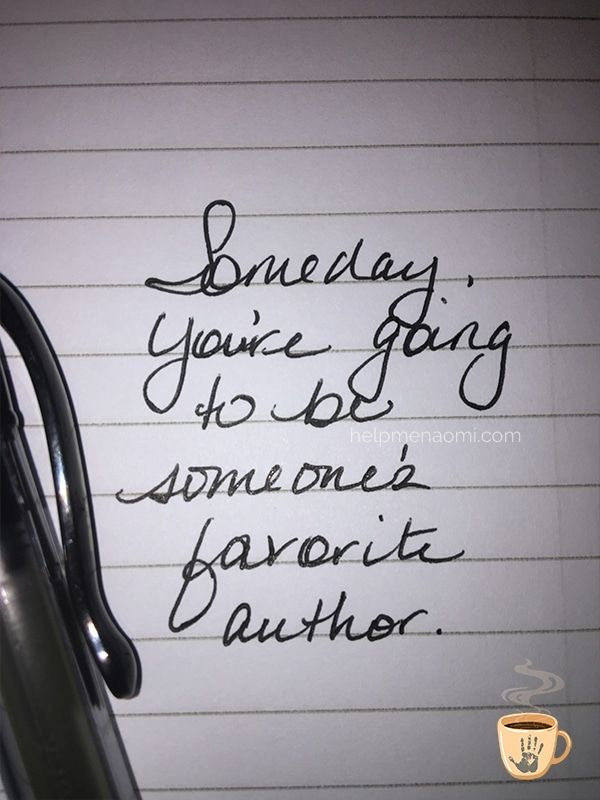 Someday,
you're going
to be
helpmenaomi.com
someone's
favorite
author.